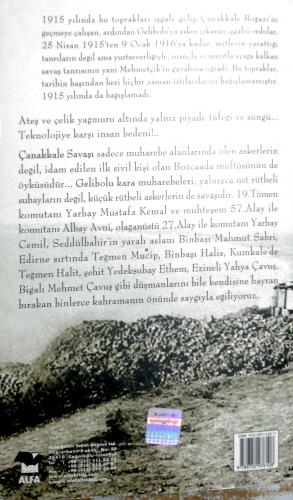 1915 yılında bu toprakları işgale gelip Çanakkale Boğazı'nı
geçmeye çalışan, ardından Gelibolu'ya asker çıkaran işgalci ordular,
25 Nisan 1915'ten 9 Ocak 1916'ya kadar, mitlerin yarattığı
tanrıların değil ama yurtseverliğiyle, inançla ve umutla ayağa kalkan
savaş tanrısının yani Mehmetçik'in gazabına uğradı. Bu topraklar,
tarihin başından beri hiçbir zaman istilacılarını bağışlamamıştır.
1915 yılında da bağışlamadı.
Ateş ve çelik yağmuru altında yalnız piyade tüfeği ve süngü...
Teknolojiye karşı insan bedeni!..
Çanakkale Savaşı sadece muharebe alanlarında ölen askerlerin
değil, idam edilen ilk sivil kişi olan Bozcaada müftüsünün de
öyküsüdür... Gelibolu kara muharebeleri, yalnızca üst rütbeli
subayların değil, küçük rütbeli askerlerin de savaşıdır. 19.Tümen
komutanı Yarbay Mustafa Kemal ve muhteşem 57.Alay ile
komutanı Albay Avni, olağanüstü 27.Alay ile komutanı Yarbay
Cemil, Seddülbahir'in yaralı aslanı Binbaşı Mahmut Sabri,
Edirne sırtında Teğmen Mucip, Binbaşı Halis, Kumkale'de
Teğmen Halit, şehit Yedeksubay Ethem, Ezineli Yahya Çavuş,
Bigalı Mehmet Çavuş gibi düşmanlarını bile kendisine hayran
bırakan binlerce kahramanın önünde saygıyla eğiliyoruz.
ALFA